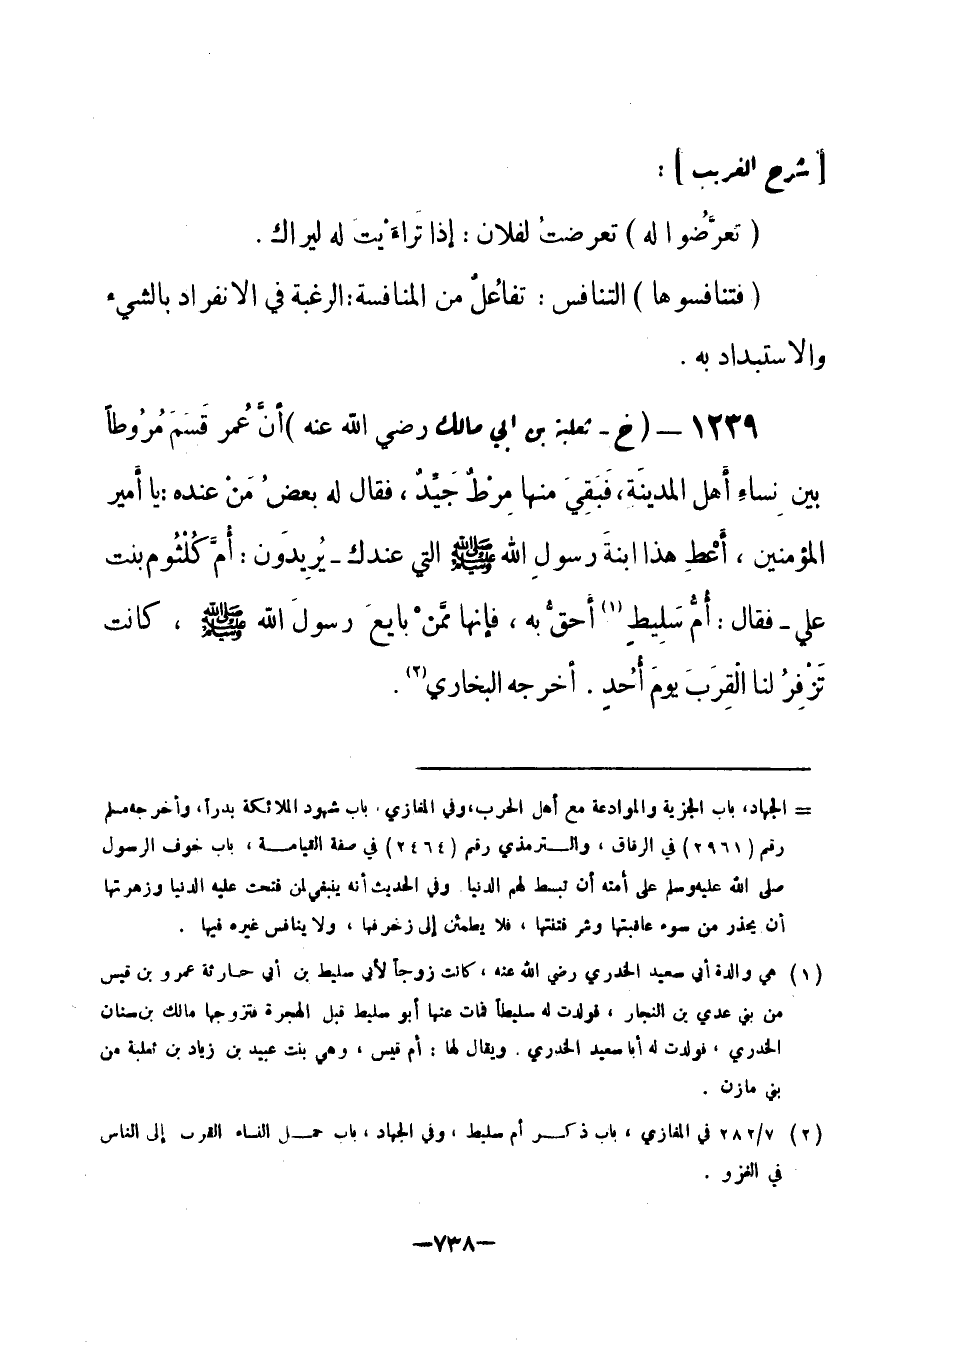 [ شرح الغريب ] :
( تعرَّضُوا له ) تعرضتُ لفلان : إذا تَراءَيتَ له ليراك .
( فتنافسوها ) التنافس : تفاعُلٌ من المنافسة : الرغبة في الانفراد بالشيء
والاستبداد به .
١٢٣٩ — ( خ - ثعلبة بن أبي مالك رضي الله عنه ) أنَّ عُمر قَسَمَ مُرُوطاً
بين نِساءِ أهل المدينَةِ ، فَبَقِيَ منها مِرْطٌ جَيِّدٌ ، فقال له بعضُ مَنْ عنده : يا أمير
المؤمنين ، أَعْطِ هذا ابنةَ رسولِ الله ﷺ التي عندك - يُرِيدُون : أمَّ كُلْثُوم بنت
علي - فقال : أُمُّ سَلِيطٍ (١) أحقُّ به ، فإنها ممَّنْ بايعَ رسولَ الله ﷺ ، كانت
تَزْفِرُ لنا الْقِرَبَ يومَ أُحُدٍ . أخرجه البخاري (٢) .
= الجهاد ، باب الجزية والموادعة مع أهل الحرب ، وفي المغازي ، باب شهود الملائكة بدراً ، وأخرجه مسلم
رقم (٢٩٦١) في الرقاق ، والترمذي رقم (٢٤٦٤) في صفة القيامة ، باب خوف الرسول
صلى الله عليه وسلم على أمته أن تبسط لهم الدنيا . وفي الحديث أنه ينبغي لمن فتحت عليه الدنيا وزهرتها
أن يحذر من سوء عاقبتها وشر فتنتها ، فلا يطمئن إلى زخرفها ، ولا ينافس غيره فيها .
(١) هي والدة أبي سعيد الخدري رضي الله عنه ، كانت زوجاً لأبي سليط بن أبي حارثة عمرو بن قيس
من بني عدي بن النجار ، فولدت له سليطاً فمات عنها أبو سليط قبل الهجرة فتزوجها مالك بن سنان
الخدري ، فولدت له أبا سعيد الخدري . ويقال لها : أم قيس ، وهي بنت عبيد بن زياد بن ثعلبة من
بني مازن .
(٢) ٢٨٢/٧ في المغازي ، باب ذكر أم سليط ، وفي الجهاد ، باب حمل النساء القرب إلى الناس
في الغزو .
—٧٣٨—